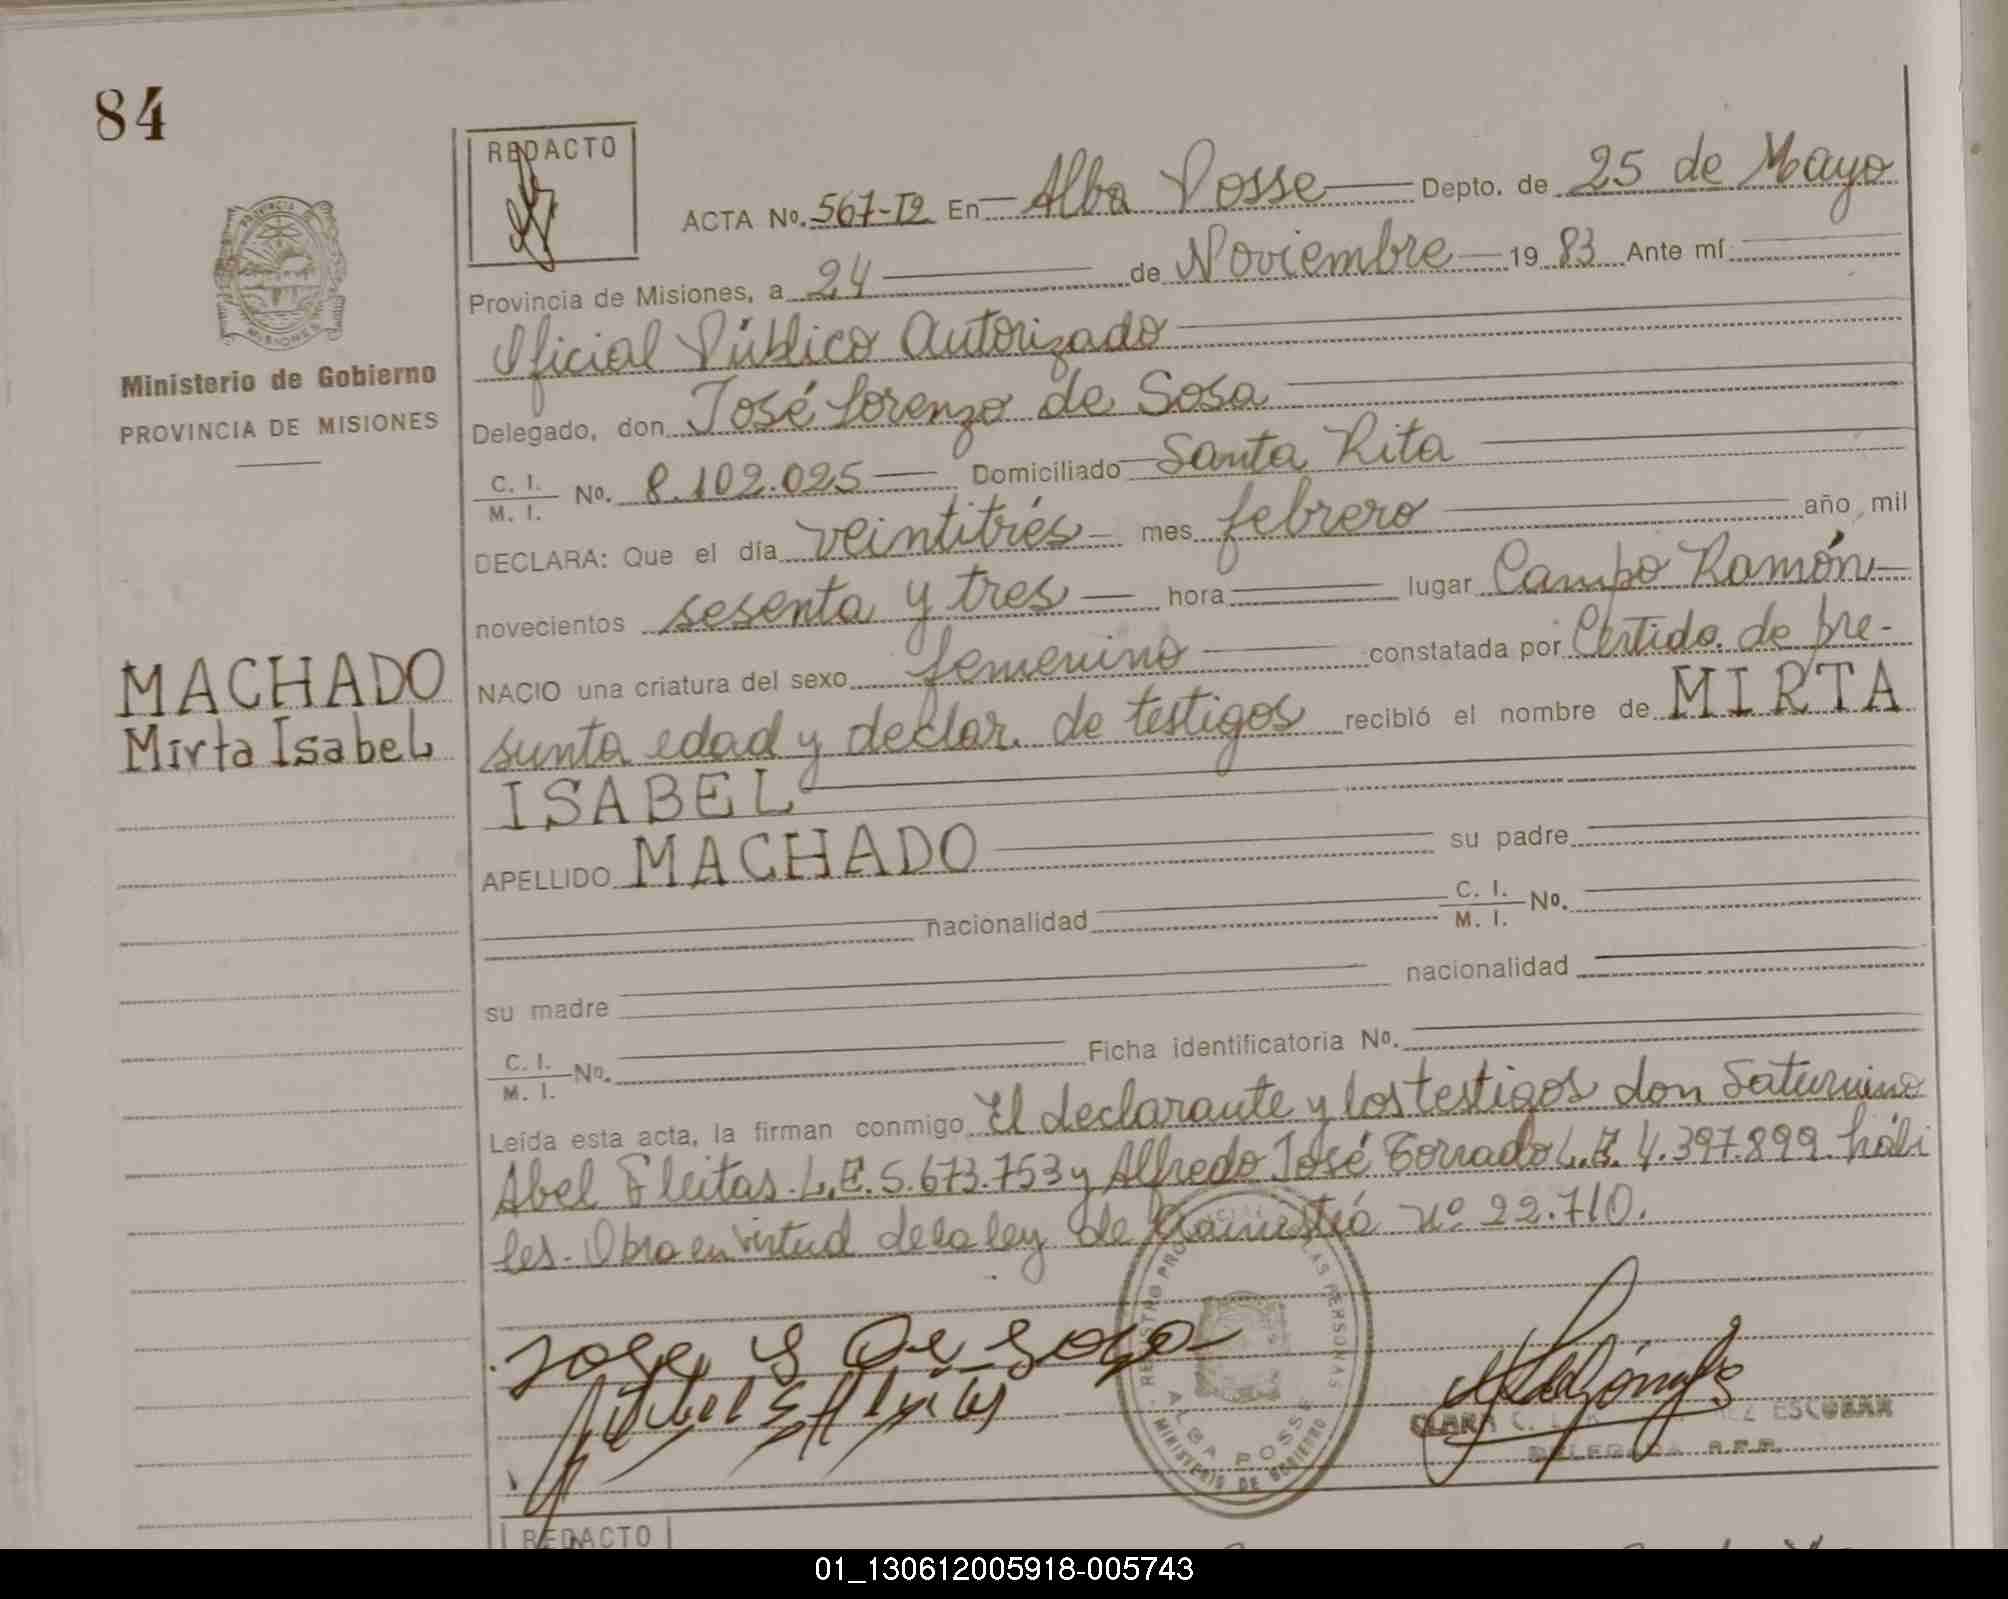 84
REDACTO
ACTA No. 567-T2 En Alba Posse Depto. de 25 de Mayo
Provincia de Misiones, a 24 de Noviembre 19 83 Ante mí
Oficial Público Autorizado
Delegado, don José Lorenzo de Sosa
C. I. / M. I. No. 8.102.025 Domiciliado Santa Rita
DECLARA: Que el día veintitrés mes febrero año mil
novecientos sesenta y tres hora lugar Campo Ramón
NACIO una criatura del sexo femenino constatada por Certido. de pre-
sunta edad y declar. de testigos recibió el nombre de MIRTA
ISABEL
APELLIDO MACHADO su padre
nacionalidad C. I. / M. I. No.
su madre nacionalidad
C. I. / M. I. No. Ficha identificatoria No.
Leída esta acta, la firman conmigo El declarante y los testigos don Saturnino
Abel Fleitas. L.E. 5.673.753 y Alfredo José Torrado L.E. 4.397.899. hábi
les. Obra en virtud de la ley de Amnistía nº 22.710.
Jose L De Sosa
CLARA C. ESCOBAR
DELEGADA R.P.P.
REGISTRO PROVINCIAL DE LAS PERSONAS
ALBA POSSE
MINISTERIO DE GOBIERNO
PROVINCIA DE
MISIONES
Ministerio de Gobierno
PROVINCIA DE MISIONES
MACHADO
Mirta Isabel
REDACTO
01_130612005918-005743